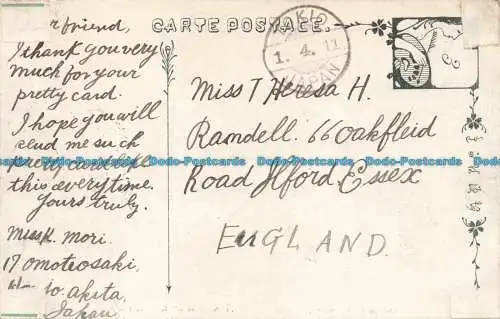 CARTE POSTALE.
r friend,
I thank you very
much for your
pretty card.
I hope you will
send me such
pretty card like
this every time.
Yours truly.
Miss K. Mori.
17 Omoteosaki
to Akita,
Japan
KIO
1. 4. 11
JAPAN
Miss T Heresa H.
Ramdell. 66 Oakfleid
Road Ilford, Essex
ENGLAND.
Dodo-Postcards Dodo-Postcards Dodo-Postcards Dodo-Postcards